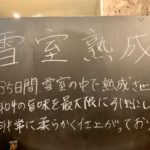 雪室熟成
35日間、雪室の中で熟成させ
和牛の旨味を最大限に引き出し
非常に柔らかく仕上がっており